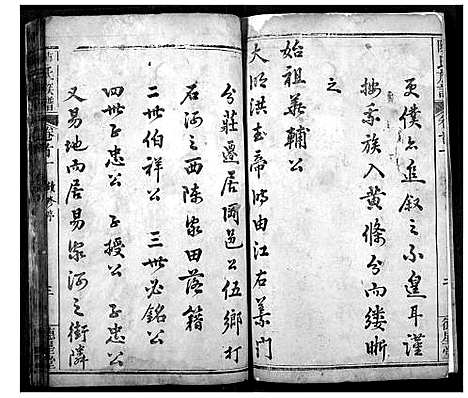 更僕亦追叙之不遑耳謹
按我族入黄條分而缕晰
之
始祖華輔公
大明洪武帝時由江右義門
分莊遷居岡邑公伍鄉打
石河之西陳家田落籍
二世伯祥公 三世必銘公
四世正忠公 正授公 正忠公
又易地而居易家河之街隣
氏族譜
卷首一
三